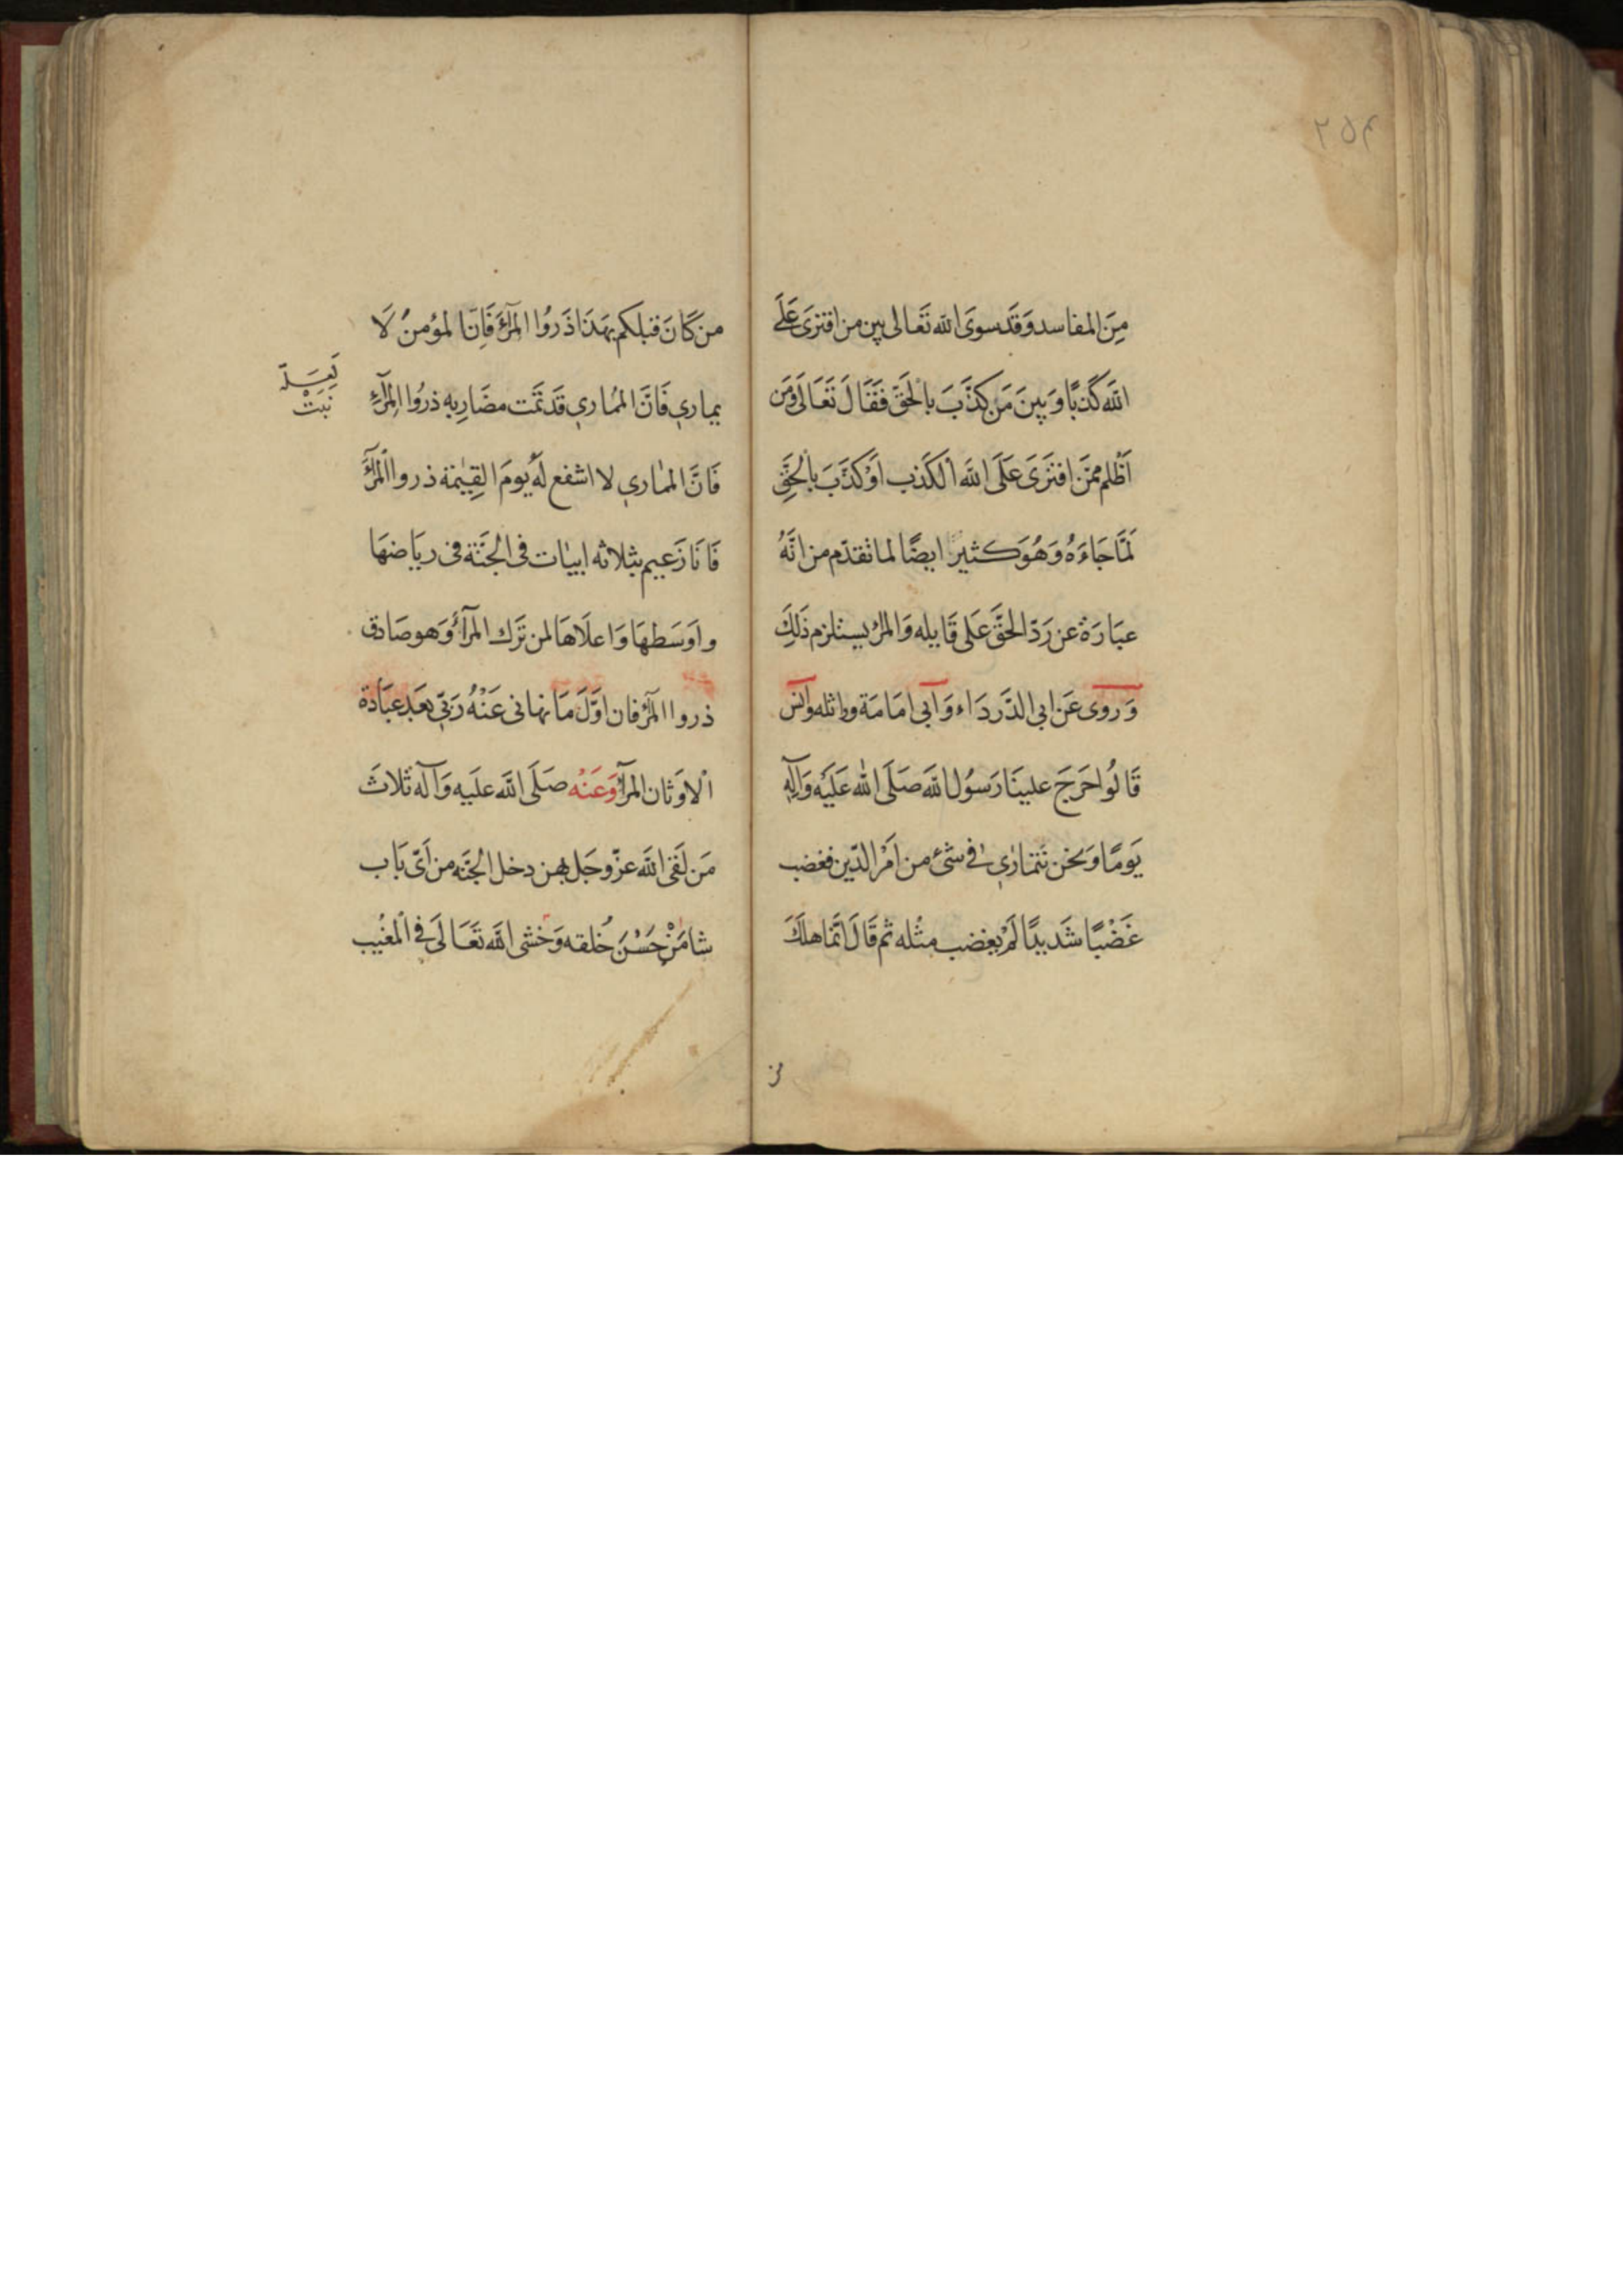 ٢٥٢
مِنَ المفاسد وَقَد سوىَ الله تَعَالى بين من افترَى عَلَى
الله كَذبًا وَبَينَ مَن كَذَّبَ بالحَقّ فَقَالَ تَعَالَى وَمَن
اَظْلم ممَّن افتَرَى عَلَى الله الكَذب اَوْ كَذَّبَ بالْحَقِّ
لَمَّا جَاءَهُ وَهُوَ كثيرًا ايضًا لما تقدّم من انَّهُ
عبَارَة عن رَدّ الحَقّ عَلى قَايله وَالمرْ يستلزم ذَلِكَ
وَروى عَن ابى الدَّردَاء وَابى امَامَة وواثله وانس
قَالُوا خرَجَ علينَا رَسُول الله صَلَى الله عَلَيْه وَآلِهِ
يَومًا وَنحن نَتماري في شئ من اَمْر الدّين فغضب
غَضْبًا شَديدًا لَمْ يغضب مثْله ثم قَالَ انَّمَا هلَكَ
من
من كَانَ قبلكم بهَذَا ذَروُا المرَآءَ فَاِنّ المؤمنُ لَا
يماري فَانَّ المُماري قَد تَمَّت مضَاربه ذرُوا المِرآءِ
فَانَّ المماري لا اشفع لَهُ يومَ القِيٰمَة ذروا المْرآءَ
فَانَا زَعيم بثلاثه ابيَات فى الجَنَّة فى ريَاضهَا
واوَسَطهَا وَاعلَاهَا لمن تَرَك المرآءَ وَهو صَادق
ذروا المرآء فان اوَّلَ مَا نهانى عَنْهُ رَبّي بعَد عبَادَة
الاَوثان المرآء وَعَنْه صَلَى الله علَيه وَآله ثَلاثَ
مَن لَقى الله عزّ وجَل بهن دخل الجَنَّه من اَىّ بَاب
شا مَنْ حَسُنَ خُلقه وَخشى الله تَعَالَى فى المْغيب